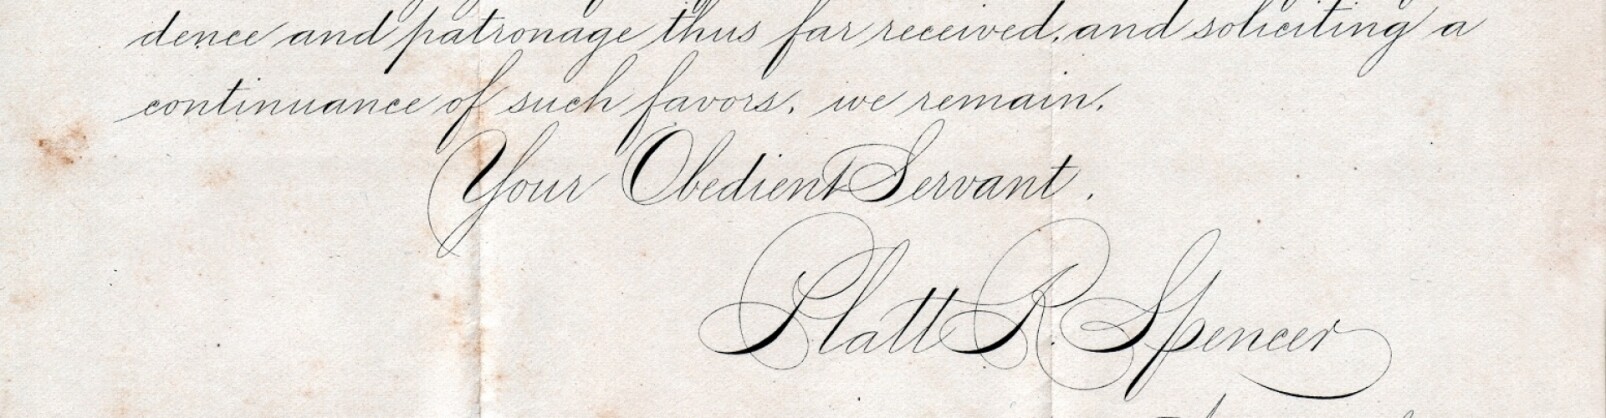 dence and patronage thus far received, and soliciting a
continuance of such favors, we remain,
Your Obedient Servant.
Platt R. Spencer